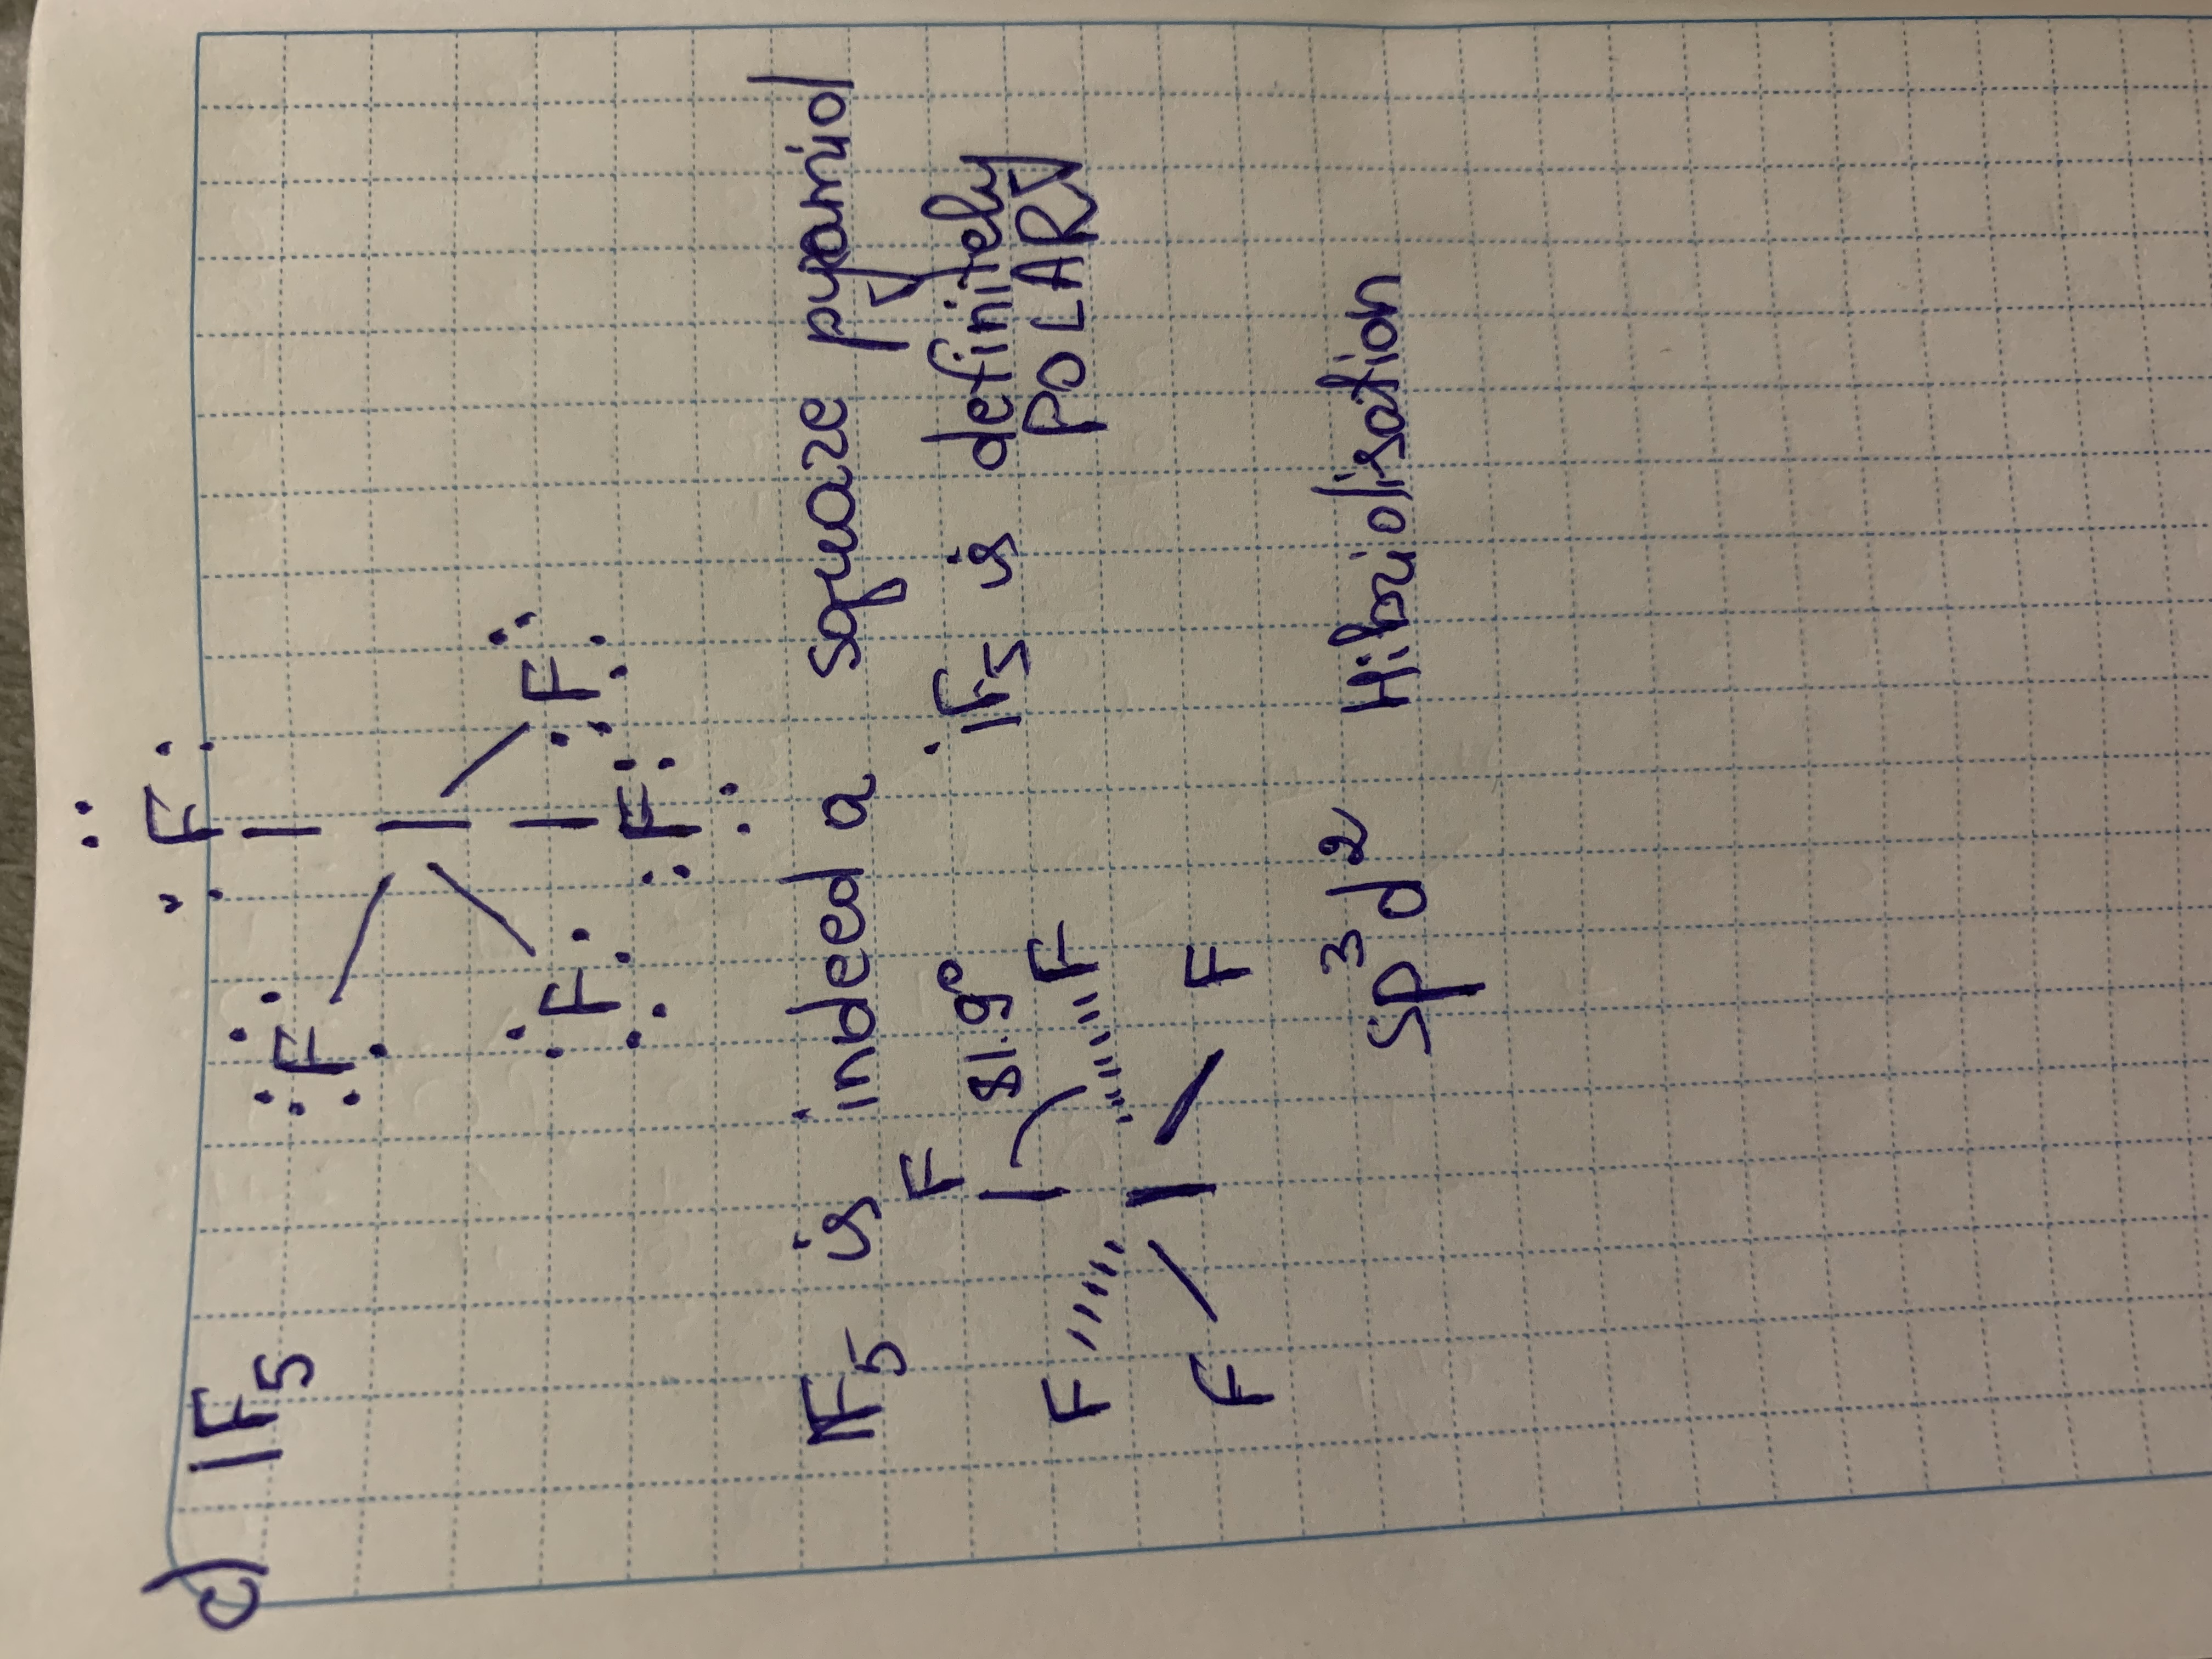 c) IF5
F
F I F
F F
IF5 is indeed a square pyramid
F
81.9°
IF5 is definitely
F F
POLAR
I
F F
sp3d2 Hibridisation